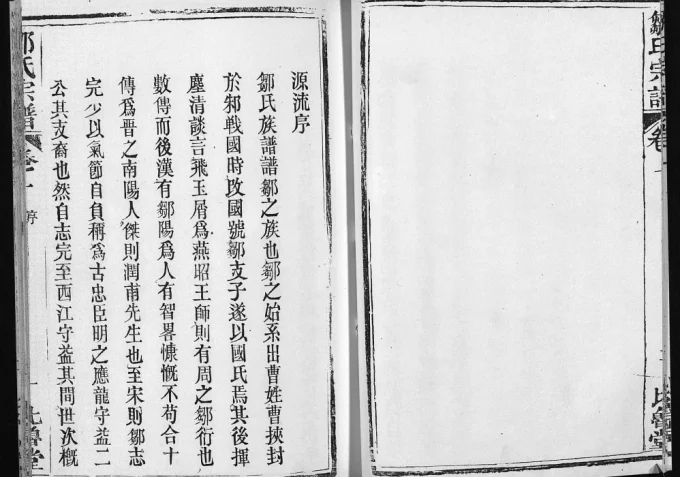 鄒氏宗譜
卷一
源流序
鄒氏族譜譜鄒之族也鄒之始系出曹姓曹挾封
於邾戰國時改國號鄒支子遂以國氏焉其後揮
麈清談言飛玉屑爲燕昭王師則有周之鄒衍也
數傳而後漢有鄒陽爲人有智畧慷慨不苟合十
傳爲晉之南陽人傑則潤甫先生也至宋則鄒志
完少以氣節自負稱爲古忠臣明之應龍守益二
公其支裔也然自志完至西江守益其間世次概
氏宗譜
卷一
序
一